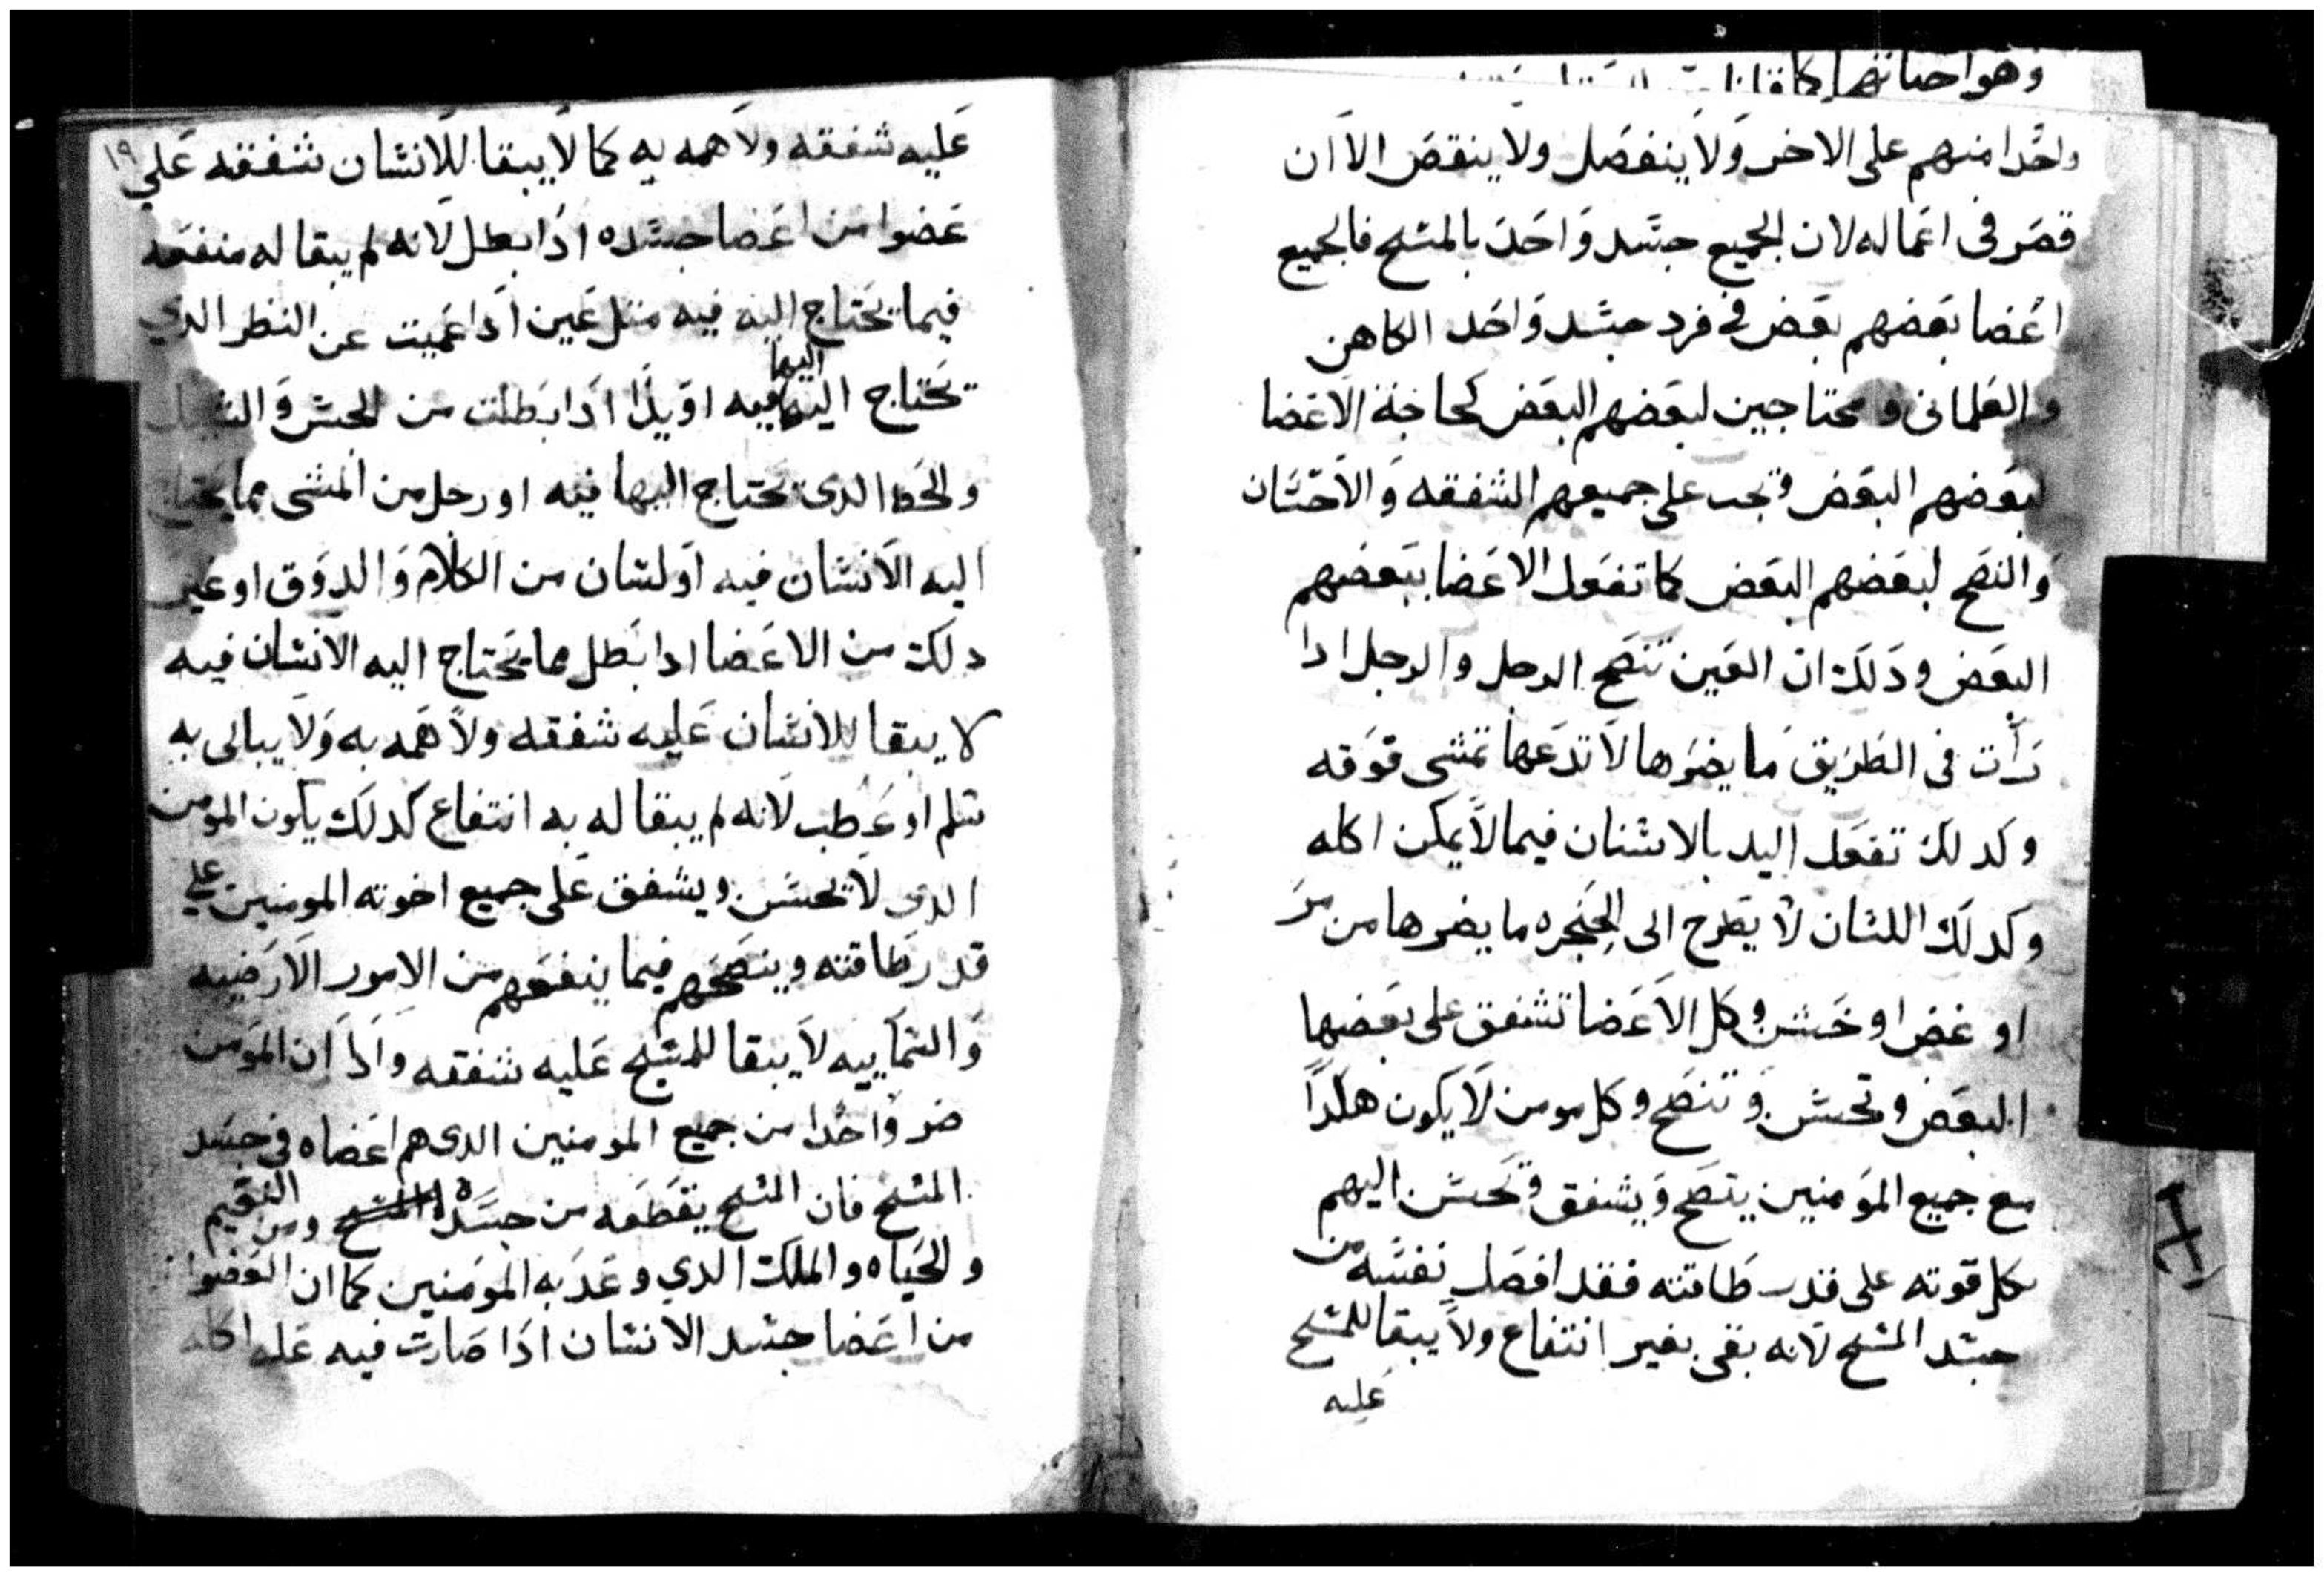 وهو احصانهم كما قلنا
واحدا منهم على الاخر ولا ينفصل ولا ينقص الا ان
قصر فى اعماله لان الجميع جسد واحد بالمسيح فالجميع
اعضا بعضهم بعض فى فرد جسد واحد الكاهن
والعلمانى ومحتاجين لبعضهم البعض كحاجة الاعضا
لبعضهم البعض وتجب على جميعهم الشفقه والاحسان
والنصح لبعضهم البعض كما تفعل الاعضا ببعضهم
البعض ودلك ان العين تنصح الرجل والرجل ادا
رأت فى الطريق ما يضرها لا تدعها تمشى فوقه
وكدلك تفعل اليد بالاسنان فيما لا يمكن اكله
وكدلك اللسان لا يطرح الى الحنجره ما يضرها من مر
او غض او خشن وكل الاعضا تشفق على بعضها
البعض وتحسن وتنصح وكل مومن لا يكون هكدا
مع جميع المومنين ينصح ويشفق وتحسن اليهم
بكل قوته على قدر طاقته فقد افصل نفسه من
جسد المسيح لانه بقى بغير انتفاع ولا يبقا للمسيح
عليه
١٩
عليه شفقه ولا همه به كما لا يبقا للانسان شفقه على
عضوا من اعضا جسده ادا بطل لانه لم يبقا له منفعه
فيما يحتاج اليه فيه متل عين ادا عميت عن النظر الدي
تحتاج اليها فيه او يدا ادا بطلت من الحس و
والخط الدى تحتاج اليها فيه او رجل من المشى مما يحتاج
اليه الانسان فيه او لسان من الكلام والدوق او غير
دلك من الاعضا ادا بطل مما يحتاج اليه الانسان فيه
لا يبقا للانسان عليه شفقه ولا همه به ولا يبالى به
سلم او عطب لانه لم يبقا له به انتفاع كدلك يكون المومن
الدي لا تحسن ويشفق على جميع اخوته المومنين على
قدر طاقته وينصحهم فيما ينفعهم من الامور الارضيه
والسماييه لا يبقا للمسيح عليه شفقه وادا ان المومن
ضر واحدا من جميع المومنين الدى هم اعضاه فى جسد
المسيح فان المسيح يقطعه من جسده المسيح ومن النعيم
والحياه والملك الدي وعد به المومنين كما ان العضوا
من اعضا جسد الانسان ادا صارت فيه عله اكله